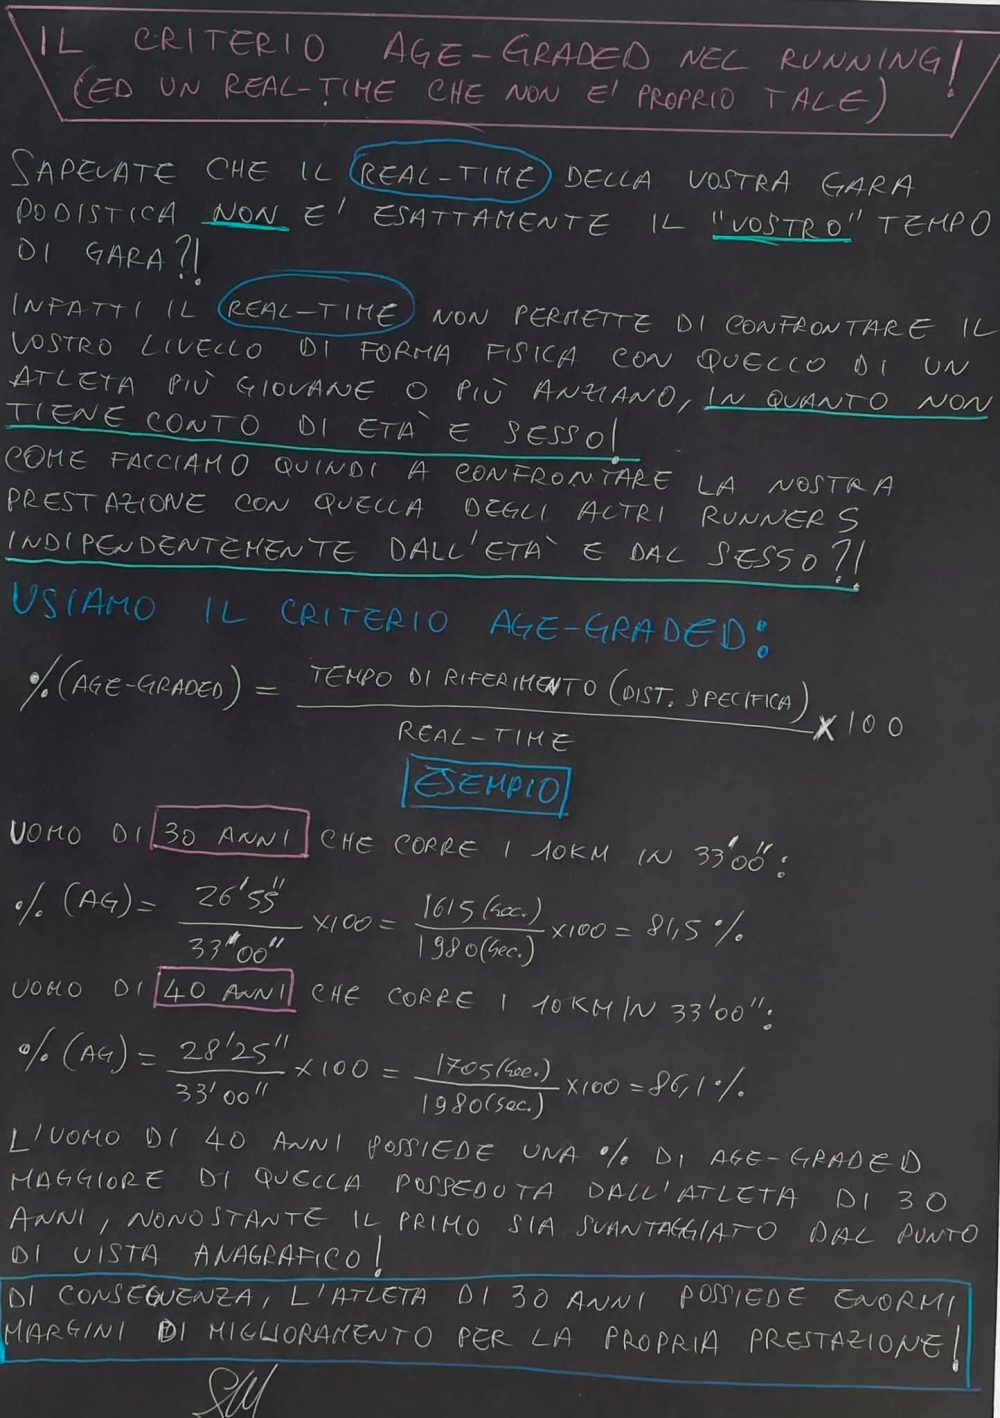 IL CRITERIO AGE-GRADED NEL RUNNING!
(ED UN REAL-TIME CHE NON E' PROPRIO TALE)
SAPEVATE CHE IL REAL-TIME DELLA VOSTRA GARA
PODISTICA NON E' ESATTAMENTE IL "VOSTRO" TEMPO
DI GARA?!
INFATTI IL REAL-TIME NON PERMETTE DI CONFRONTARE IL
VOSTRO LIVELLO DI FORMA FISICA CON QUELLO DI UN
ATLETA PIÙ GIOVANE O PIÙ ANZIANO, IN QUANTO NON
TIENE CONTO DI ETÀ E SESSO!
COME FACCIAMO QUINDI A CONFRONTARE LA NOSTRA
PRESTAZIONE CON QUELLA DEGLI ALTRI RUNNERS
INDIPENDENTEMENTE DALL'ETÀ E DAL SESSO?!
USIAMO IL CRITERIO AGE-GRADED:
% (AGE-GRADED) = TEMPO DI RIFERIMENTO (DIST. SPECIFICA)
REAL-TIME
X 100
ESEMPIO
UOMO DI 30 ANNI CHE CORRE I 10KM IN 33'00":
% (AG) = 26'55" / 33'00" X100 = 1615 (sec.) / 1980 (sec.) X100 = 81,5 %
UOMO DI 40 ANNI CHE CORRE I 10KM IN 33'00":
% (AG) = 28'25" / 33'00" X100 = 1705 (sec.) / 1980 (sec.) X100 = 86,1 %
L'UOMO DI 40 ANNI POSSIEDE UNA % DI AGE-GRADED
MAGGIORE DI QUELLA POSSEDUTA DALL'ATLETA DI 30
ANNI, NONOSTANTE IL PRIMO SIA SVANTAGGIATO DAL PUNTO
DI VISTA ANAGRAFICO!
DI CONSEGUENZA, L'ATLETA DI 30 ANNI POSSIEDE ENORMI
MARGINI DI MIGLIORAMENTO PER LA PROPRIA PRESTAZIONE!